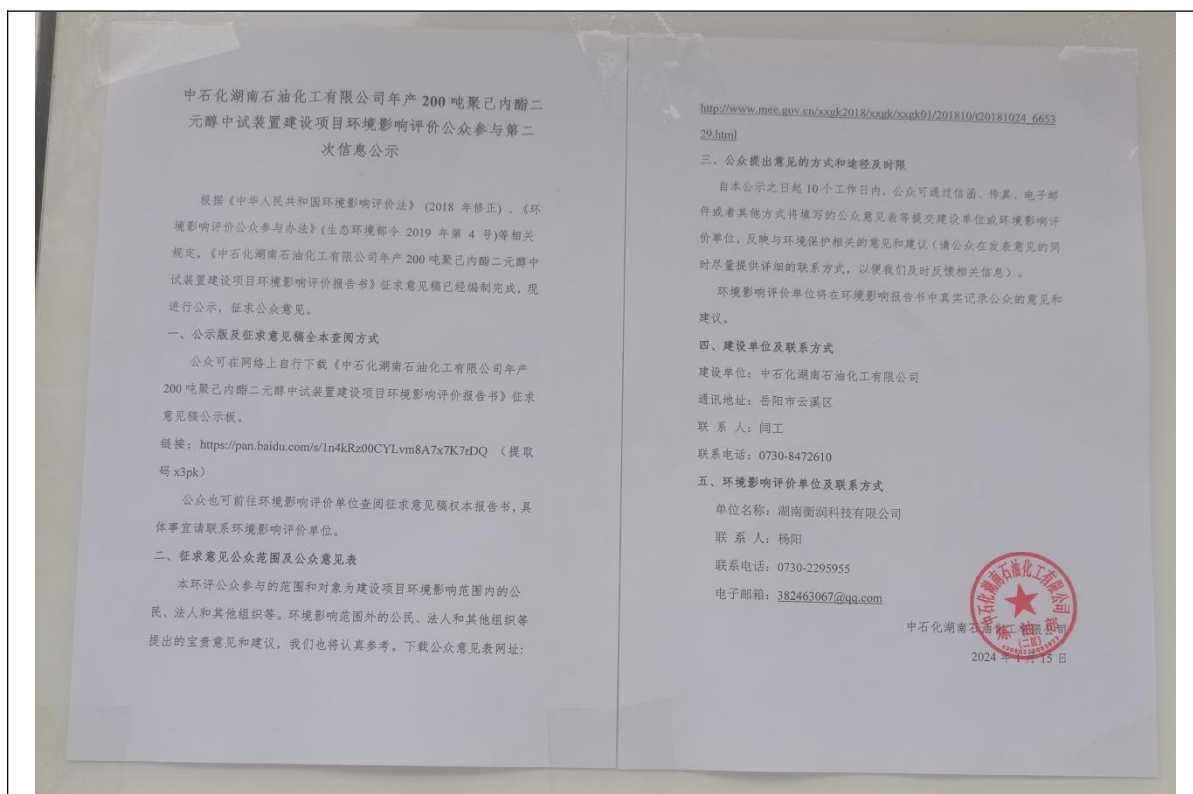 中石化湖南石油化工有限公司年产 200 吨聚己内酯二
元醇中试装置建设项目环境影响评价公众参与第二
次信息公示
根据《中华人民共和国环境影响评价法》 (2018 年修正) 、《环
境影响评价公众参与办法》(生态环境部令 2019 年第 4 号)等相关
规定,《中石化湖南石油化工有限公司年产 200 吨聚己内酯二元醇中
试装置建设项目环境影响评价报告书》征求意见稿已经编制完成,现
进行公示,征求公众意见。
一、公示版及征求意见稿全本查阅方式
公众可在网络上自行下载《中石化湖南石油化工有限公司年产
200 吨聚己内酯二元醇中试装置建设项目环境影响评价报告书》征求
意见稿公示板。
链接:https://pan.baidu.com/s/1n4kRz00CYLvm8A7x7K7rDQ (提取
码 x3pk)
公众也可前往环境影响评价单位查阅征求意见稿权本报告书,具
体事宜请联系环境影响评价单位。
二、征求意见公众范围及公众意见表
本环评公众参与的范围和对象为建设项目环境影响范围内的公
民、法人和其他组织等。环境影响范围外的公民、法人和其他组织等
提出的宝贵意见和建议,我们也将认真参考。下载公众意见表网址:
http://www.mee.gov.cn/xxgk2018/xxgk/xxgk01/201810/t20181024_6653
29.html
三、公众提出意见的方式和途径及时限
自本公示之日起 10 个工作日内,公众可通过信函、传真、电子邮
件或者其他方式将填写的公众意见表等提交建设单位或环境影响评
价单位,反映与环境保护相关的意见和建议(请公众在发表意见的同
时尽量提供详细的联系方式,以便我们及时反馈相关信息)。
环境影响评价单位将在环境影响报告书中真实记录公众的意见和
建议。
四、建设单位及联系方式
建设单位:中石化湖南石油化工有限公司
通讯地址:岳阳市云溪区
联 系 人:闫工
联系电话:0730-8472610
五、环境影响评价单位及联系方式
单位名称:湖南衡润科技有限公司
联 系 人:杨阳
联系电话:0730-2295955
电子邮箱:382463067@qq.com
中石化湖南石油化工有限公司
2024 年 1 月 15 日
中石化湖南石油化工有限公司
炼油部
(二区)